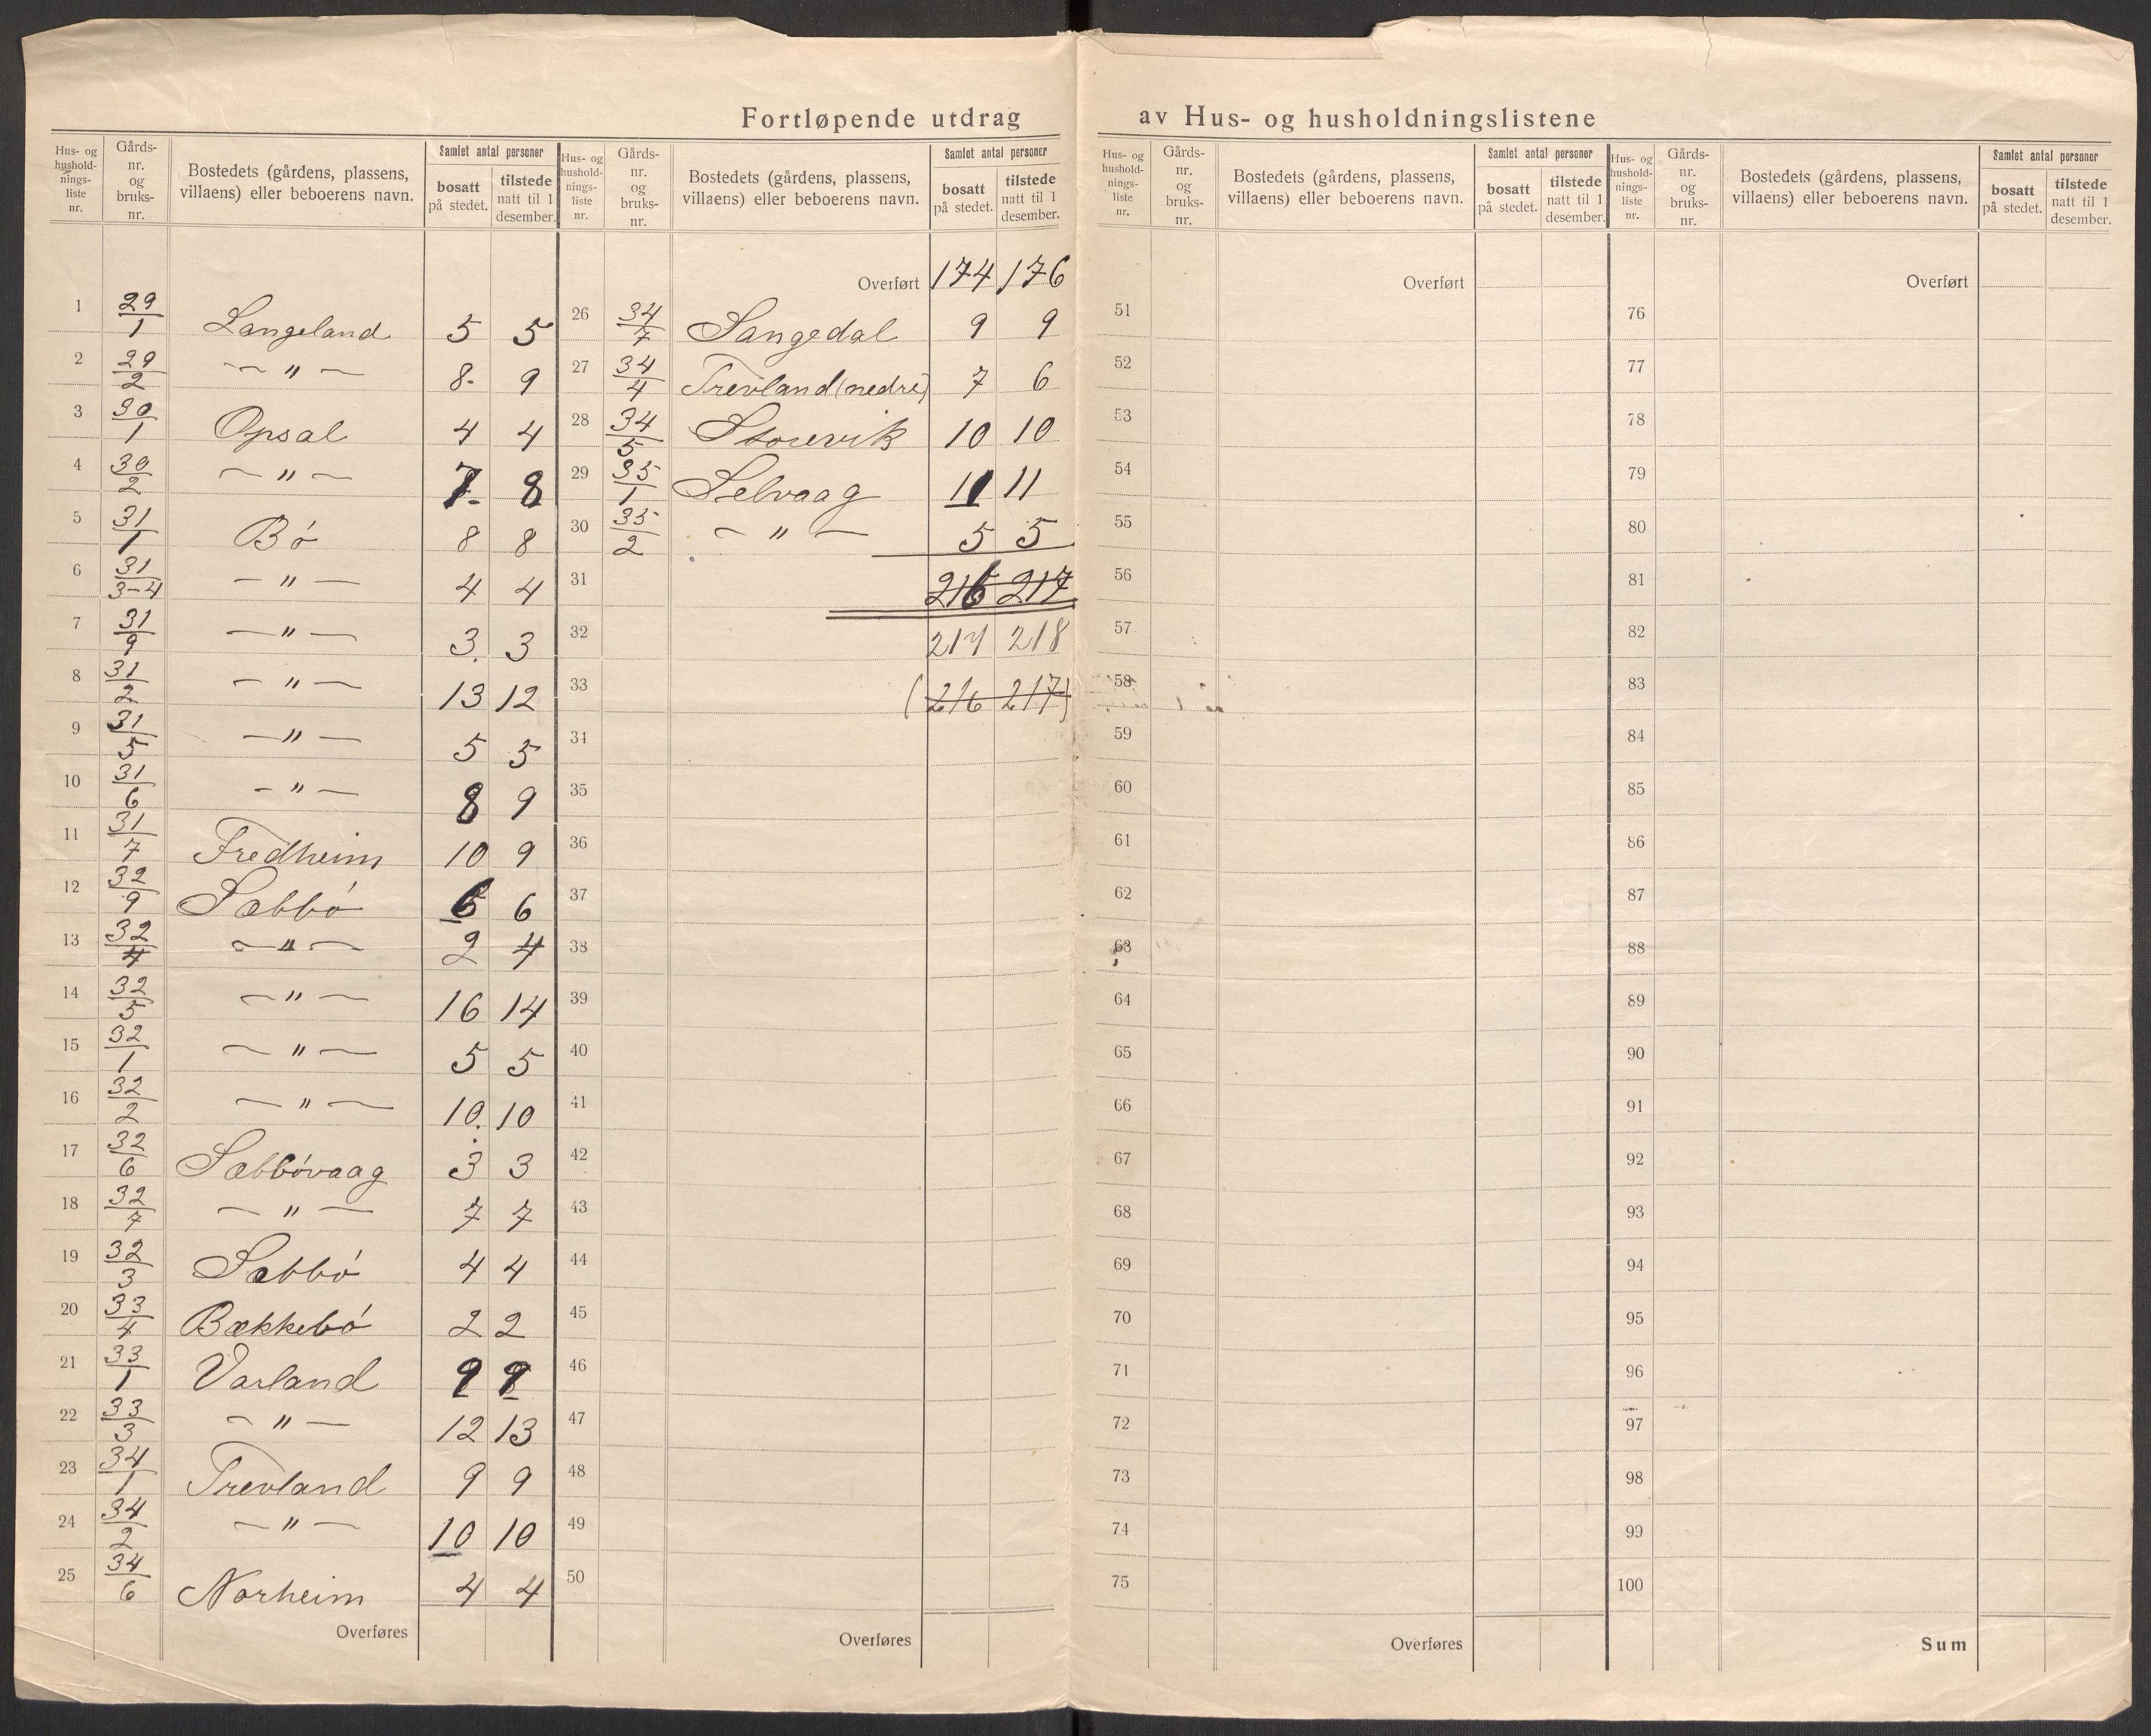 Fortløpende utdrag av Hus- og husholdningslistene
Hus- og hushold-nings-liste nr. | Gårds-nr. og bruks-nr. | Bostedets (gårdens, plassens, villaens) eller beboerens navn. | Samlet antal personer | bosatt på stedet. | tilstede natt til 1 desember.
1 29/1 Langeland 5 5
2 29/2 — " — 8. 9
3 30/1 Opsal 4 4
4 30/2 — " — 7. 8
5 31/1 Bó 8 8
6 31/3-4 — " — 4 4
7 31/9 — " — 3. 3
8 31/2 — " — 13 12
9 31/5 — " — 5 5
10 31/6 — " — 8 9
11 31/7 Fredheim 10 9
12 32/9 Sæbbó 6 6
13 32/4 — " — 2 4
14 32/5 — " — 16 14
15 32/1 — " — 5 5
16 32/2 — " — 10. 10
17 32/6 Sæbbóvaag 3 3
18 32/7 — " — 7 7
19 32/3 Sæbbó 4 4
20 33/4 Bækkebó 2 2
21 33/1 Varland 9 9
22 33/3 — " — 12 13
23 34/1 Trevland 9 9
24 34/2 — " — 10 10
25 34/6 Norheim 4 4
Overføres
Hus- og hushold-nings-liste nr. | Gårds-nr. og bruks-nr. | Bostedets (gårdens, plassens, villaens) eller beboerens navn. | Samlet antal personer | bosatt på stedet. | tilstede natt til 1 desember.
Overført 174 176
26 34/7 Sangedal 9 9
27 34/4 Trevland (nedre) 7 6
28 34/5 Storevik 10 10
29 35/1 Selvaag 11 11
30 35/2 — " — 5 5
31 216 217
32 217 218
33 (216 217)
34
35
36
37
38
39
40
41
42
43
44
45
46
47
48
49
50
Overføres
Hus- og hushold-nings-liste nr. | Gårds-nr. og bruks-nr. | Bostedets (gårdens, plassens, villaens) eller beboerens navn. | Samlet antal personer | bosatt på stedet. | tilstede natt til 1 desember.
Overført
51
52
53
54
55
56
57
58
59
60
61
62
63
64
65
66
67
68
69
70
71
72
73
74
75
Overføres
Hus- og hushold-nings-liste nr. | Gårds-nr. og bruks-nr. | Bostedets (gårdens, plassens, villaens) eller beboerens navn. | Samlet antal personer | bosatt på stedet. | tilstede natt til 1 desember.
Overført
76
77
78
79
80
81
82
83
84
85
86
87
88
89
90
91
92
93
94
95
96
97
98
99
100
Sum